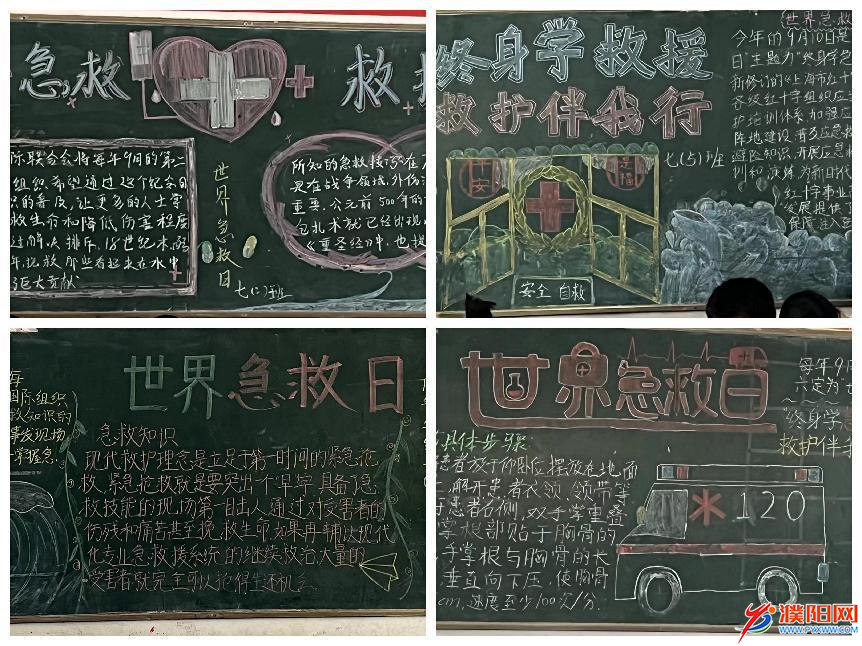 急救
救
际联合会将每年9月的第二
组织希望通过这个纪念日
识的普及,让更多的人士掌
救生命和降低伤害程度
巨大贡献
世界急救日
所知的急救技
是在战争领域,外伤
重要,公元前500年的
包扎术就已经出现
终身学救援
救护伴我行
七(5)班
平安
是福
安全 自救
世界急救
今年的9月10日是
日"主题为"终身学
新修订的《上海市红十
各级红十字组织应当
护培训体系,加强应
阵地建设,普及应急救
避险知识,开展应急
训和演练,为新时代
红十字事业
发展提供了
保障,注入
每
国际组织
救知识的
事发现场
掌握急
世界急救日
急救知识
现代救护理念是立足于第一时间的紧急抢
救,紧急抢救就是要突出一个早字,具备了急
救技能的现场第一目击人通过对受害者的
伤残和痛苦甚至挽救生命,如果再辅以现代
化专业急救援系统的继续救治,大量的
受害者就完全可以抢得生还机会
世界急救日
每年9月
六定为"
终身学
救护伴我
具体步骤:
患者放于仰卧位摆放在地面
解开患者衣领、领带等
患者右侧,双手掌重叠
掌根部贴于胸骨的
手掌根与胸骨的长
垂直向下压,使胸骨
cm,速度至少100次/分.
120
濮阳网
WWW.PYXWW.COM